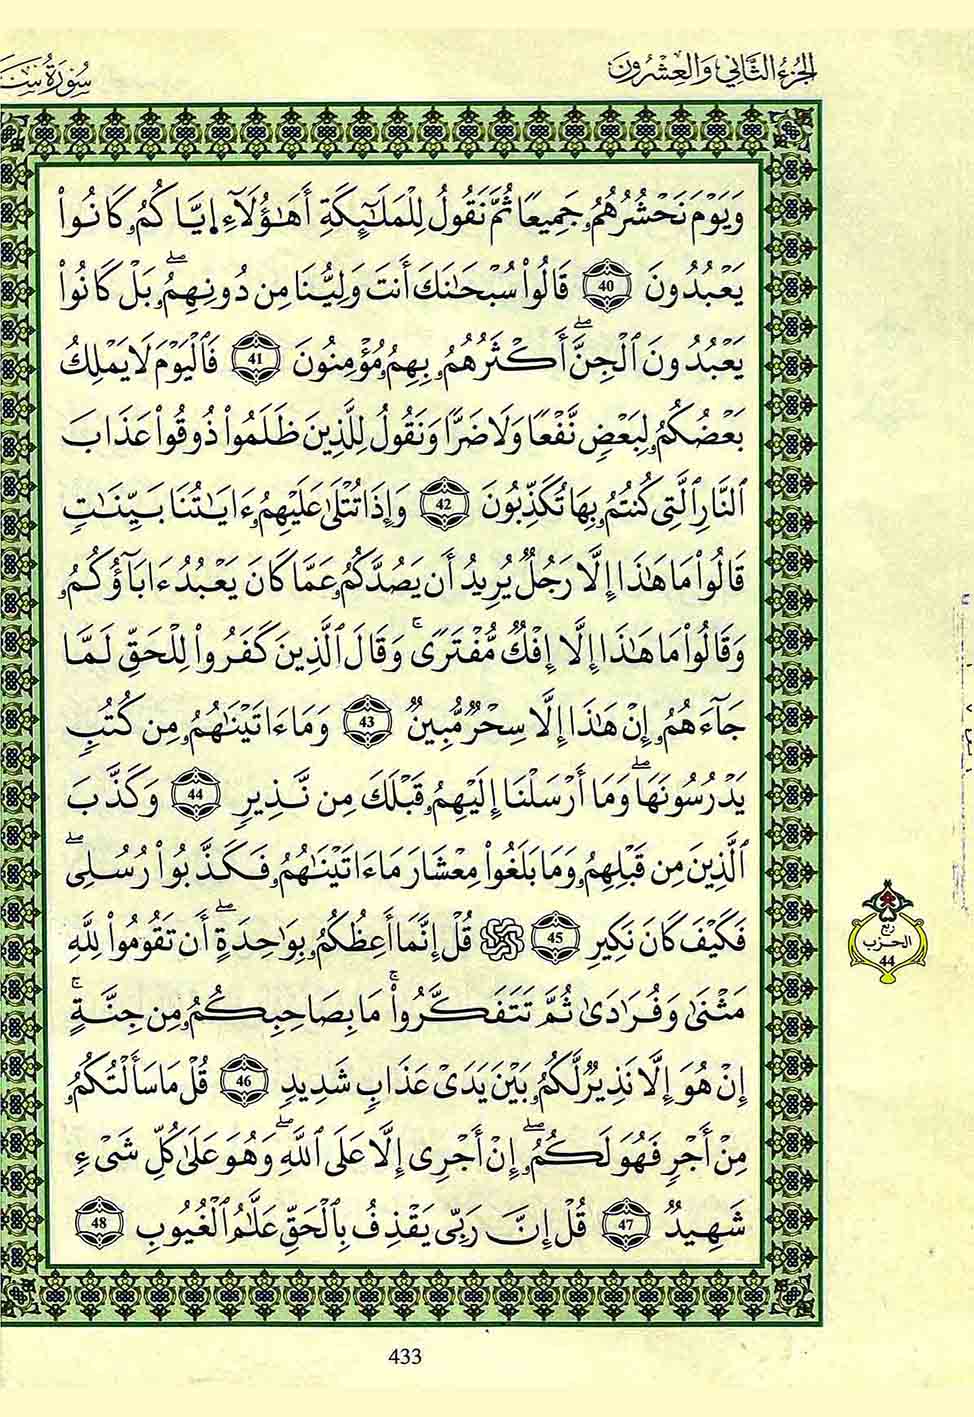 الجزء الثاني والعشرون
سورة سبأ
وَيَوْمَ نَحْشُرُهُمُۥ جَمِيعًا ثُمَّ نَقُولُ لِلْمَلَٰٓئِكَةِ أَهَٰؤُلَآءِ اِيَّاكُمُۥ كَانُواْ
يَعْبُدُونَ 40 قَالُواْ سُبْحَٰنَكَ أَنتَ وَلِيُّنَا مِن دُونِهِمُۖ بَلْ كَانُواْ
يَعْبُدُونَ اَلْجِنَّۖ أَكْثَرُهُمُۥ بِهِمُۥ مُؤْمِنُونَ 41 فَالْيَوْمَ لَا يَمْلِكُ
بَعْضُكُمُۥ لِبَعْضٍ نَّفْعًا وَلَا ضَرًّا وَنَقُولُ لِلَّذِينَ ظَلَمُواْ ذُوقُواْ عَذَابَ
اَلنَّارِ اِلَّتِي كُنتُمُۥ بِهَا تُكَذِّبُونَ 42 وَإِذَا تُتْلَىٰ عَلَيْهِمُۥ ءَايَٰتُنَا بَيِّنَٰتٍ
قَالُواْ مَا هَٰذَا إِلَّا رَجُلٌ يُرِيدُ أَن يَصُدَّكُمُۥ عَمَّا كَانَ يَعْبُدُ ءَابَآؤُكُمُۥ
وَقَالُواْ مَا هَٰذَا إِلَّا إِفْكٌ مُّفْتَرًىۚ وَقَالَ اَلَّذِينَ كَفَرُواْ لِلْحَقِّ لَمَّا
جَآءَهُمُۥ إِنْ هَٰذَا إِلَّا سِحْرٌ مُّبِينٌ 43 وَمَا ءَاتَيْنَٰهُمُۥ مِن كُتُبٍ
يَدْرُسُونَهَاۖ وَمَا أَرْسَلْنَا إِلَيْهِمُۥ قَبْلَكَ مِن نَّذِيرٍ 44 وَكَذَّبَ
اَلَّذِينَ مِن قَبْلِهِمُۥ وَمَا بَلَغُواْ مِعْشَارَ مَا ءَاتَيْنَٰهُمُۥ فَكَذَّبُواْ رُسُلِيۖ
فَكَيْفَ كَانَ نَكِيرِ 45 قُلْ إِنَّمَا أَعِظُكُمُۥ بِوَٰحِدَةٍۖ أَن تَقُومُواْ لِلَّهِ
مَثْنَىٰ وَفُرَٰدَىٰ ثُمَّ تَتَفَكَّرُواْۚ مَا بِصَاحِبِكُمُۥ مِن جِنَّةٍۚ
إِنْ هُوَ إِلَّا نَذِيرٌ لَّكُمُۥ بَيْنَ يَدَيْ عَذَابٍ شَدِيدٍ 46 قُلْ مَا سَأَلْتُكُمُۥ
مِنْ أَجْرٍ فَهُوَ لَكُمُۥۖ إِنْ أَجْرِي إِلَّا عَلَى اَللَّهِۖ وَهُوَ عَلَىٰ كُلِّ شَيْءٍ
شَهِيدٌ 47 قُلْ إِنَّ رَبِّي يَقْذِفُ بِالْحَقِّ عَلَّٰمُ اُلْغُيُوبِ 48
ربع
الحزب
44
433